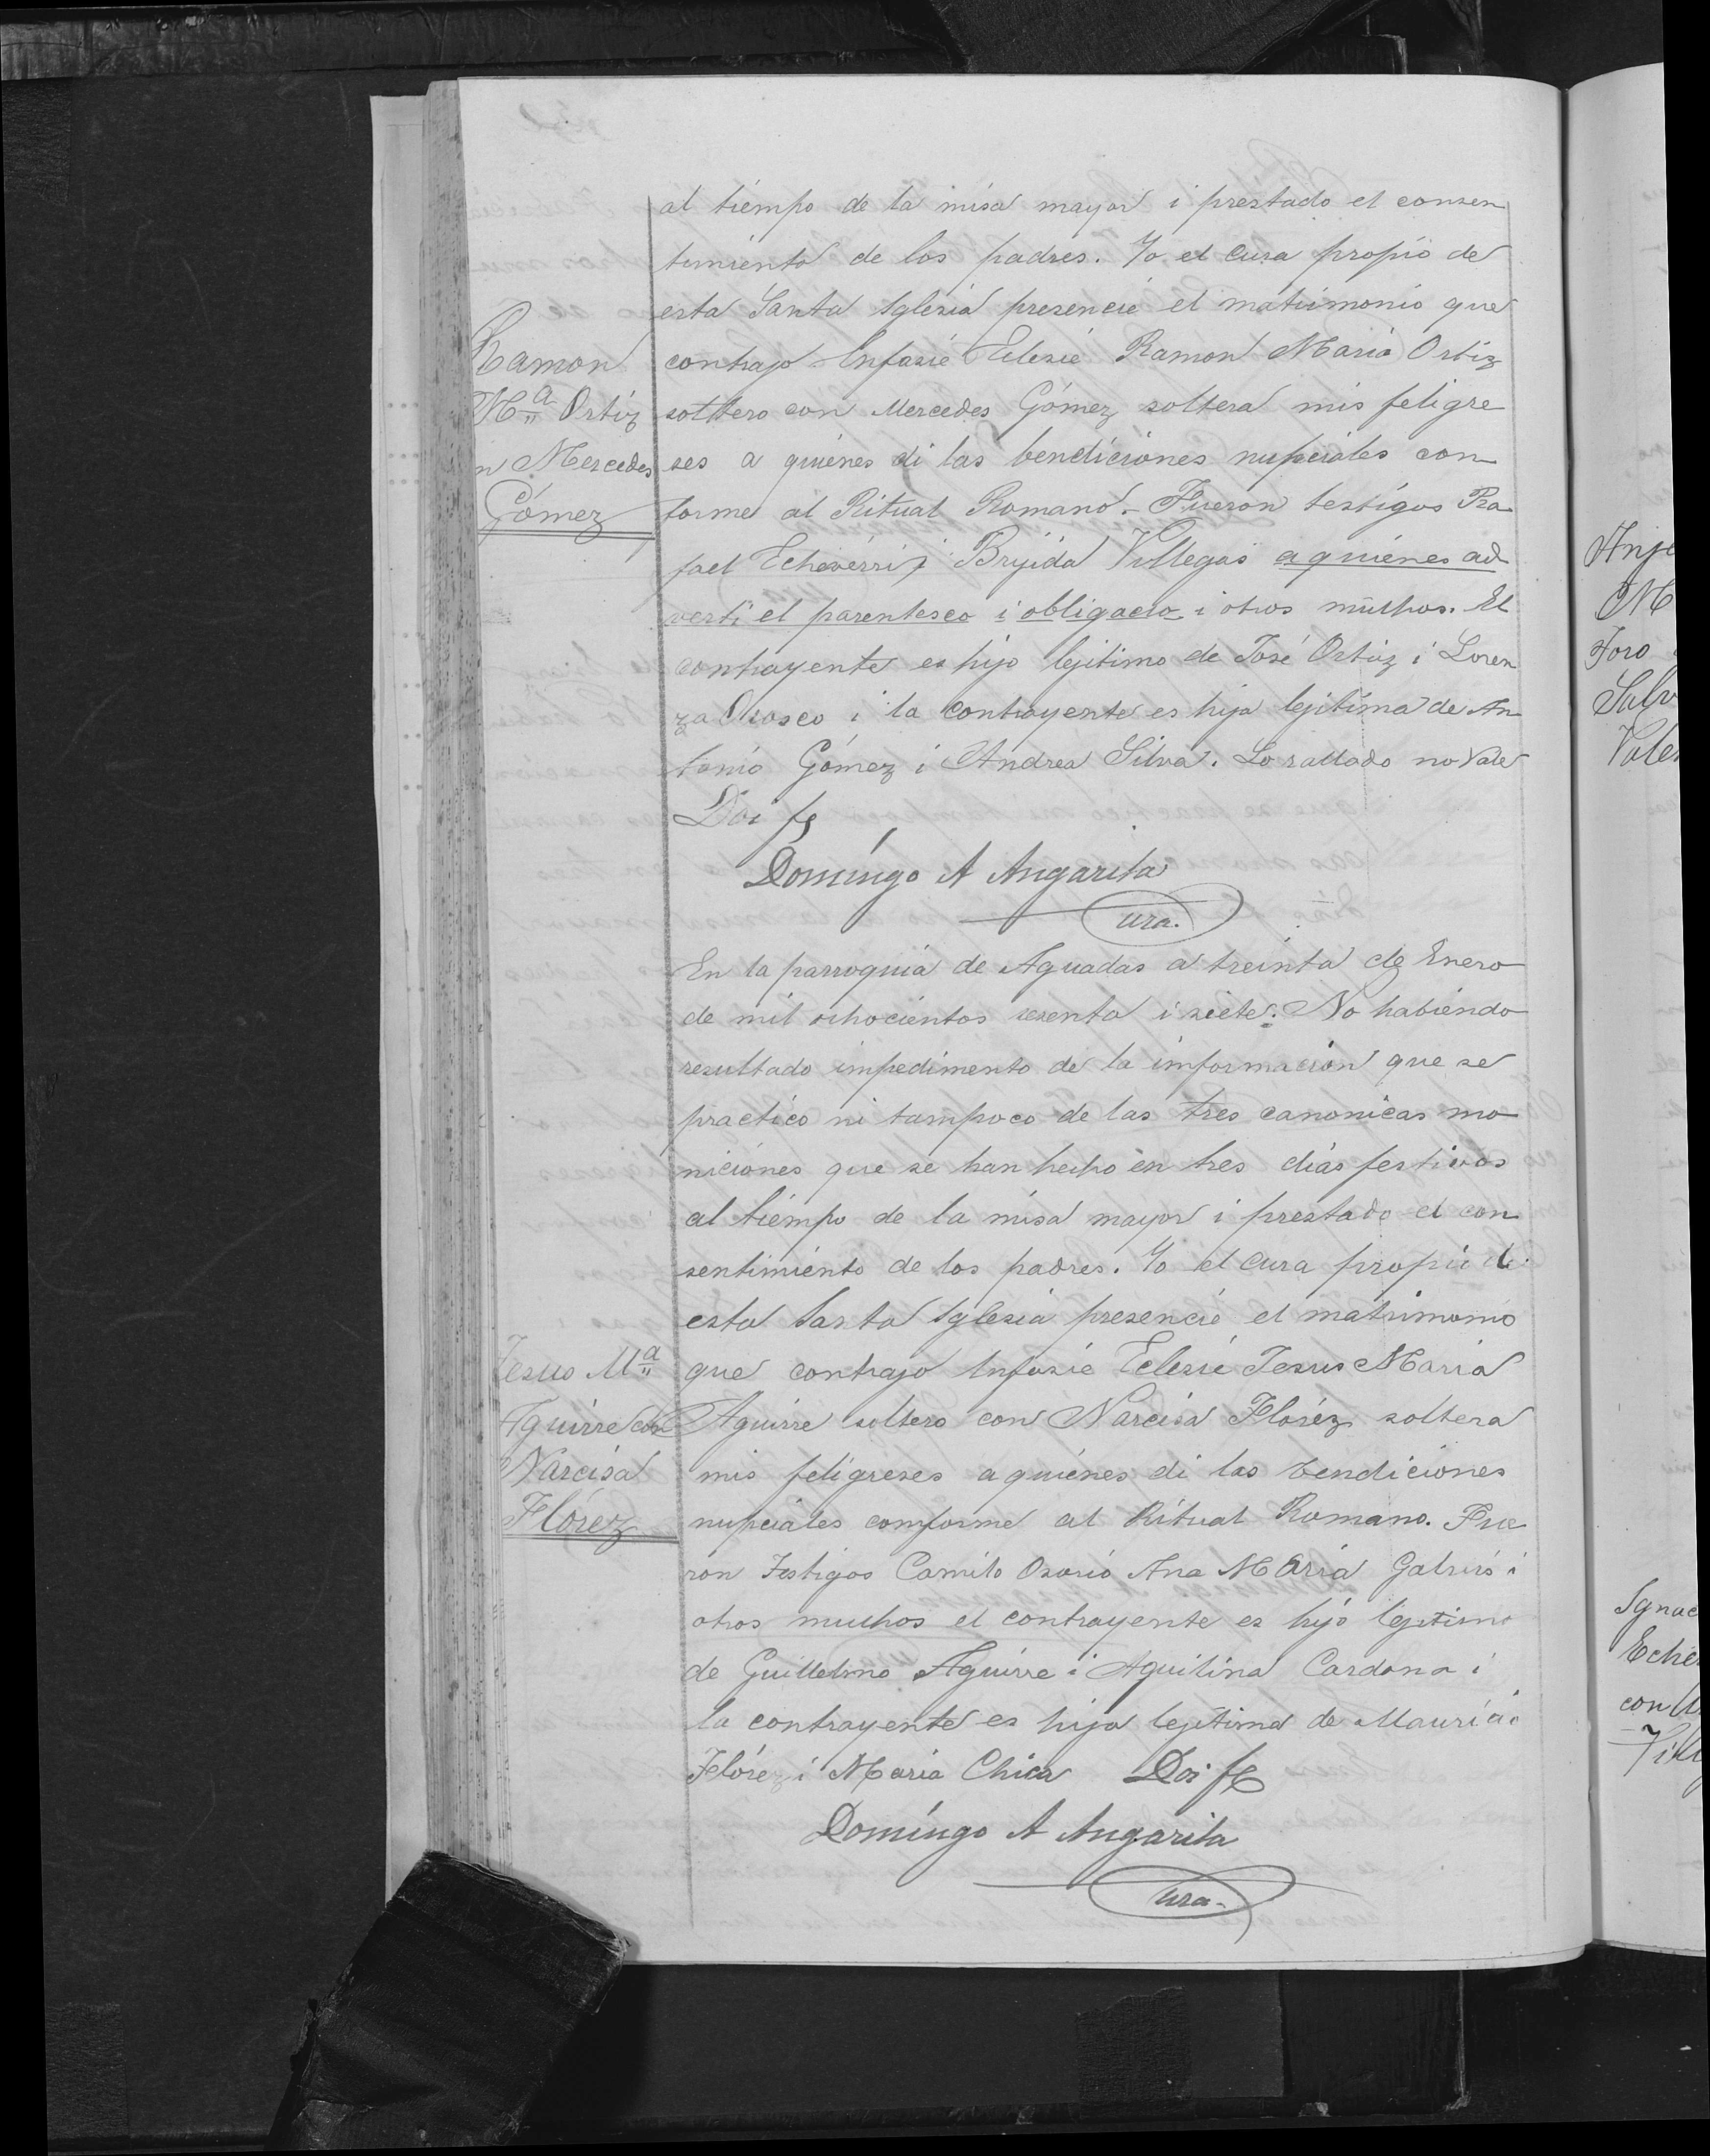 al tiempo de la misa mayor i prestado el consen
timiento de los padres. Yo el cura propio de
esta Santa Iglesia presencié el matrimonio que
Ramon
Mª Ortiz
n Mercedes
Gómez
contrajo Infasie Eclesie Ramon Maria Ortiz
soltero con Mercedes Gómez soltera mis feligre
ses a quiénes di las bendiciones nupciales con
forme al Ritual Romano. Fueron testigos Ra
fael Echeverri i Brijida Villegas a quiénes ad
verti el parentesco i obligacio i otros muchos. El
contrayente es hijo lejitimo de José Ortiz i Loren
za Orosco i la contrayente es hija lejitima de An
tonio Gómez i Andrea Silva. Lo rallado no vale
Doi fe
Domingo A Angarita
Cura.
En la parroquia de Aguadas a treinta de Enero
de mil ochocientos sesenta i siete. No habiendo
resultado impedimento de la informacion que se
practico ni tampoco de las tres canonicas mo
niciones que se han hecho en tres dias festivos
al tiempo de la misa mayor i prestado el con
sentimiento de los padres. Yo el cura propio de
esta Santa Iglesia presencié el matrimonio
Jesus Mª
Aguirre con
Narcisa
Flórez
que contrajo Infasie Eclesie Jesus Maria
Aguirre soltero con Narcisa Flórez soltera
mis feligreses a quiénes di las bendiciones
nupciales conforme al Ritual Romano. Fue
ron Testigos Camilo Osorio Ana Maria i
otros muchos el contrayente es hijo legitimo
de Guillelmo Aguirre i Aquilina Cardona i
la contrayente es hija legitima de Mauricio
Flórez i Maria Chica Doi fe
Domingo A Angarita
Cura.
Anje
M
Toro
Salv
Valen
Ignac
Eche
con
Vill